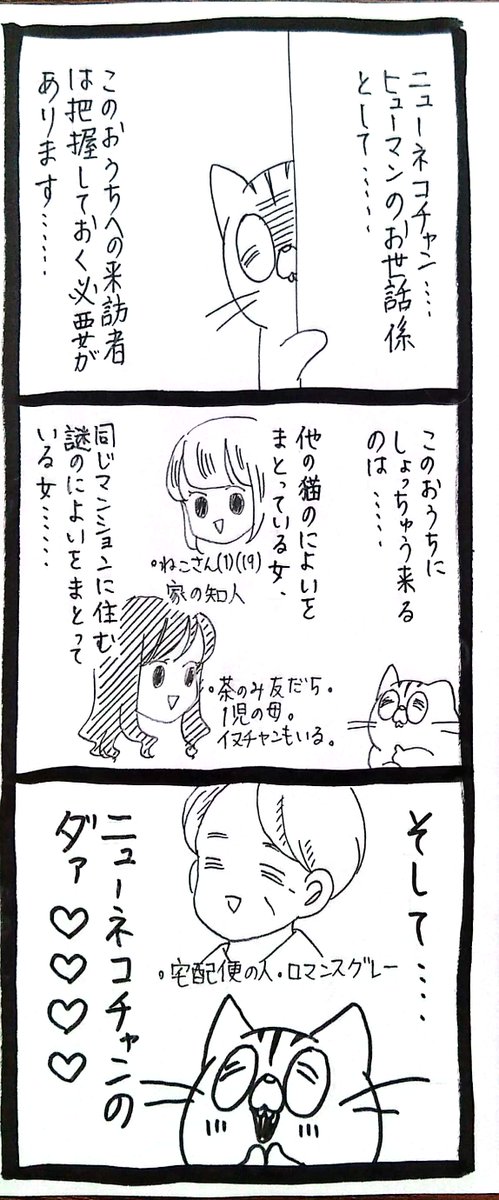 ニューネコチャン‥‥
ヒューマンのお世話係
として‥‥‥
このおうちへの来訪者
は把握しておく必要が
あります‥‥‥
このおうちに
しょっちゅう来る
のは‥‥‥
他の猫のによいを
まとっている女、
・ねこさん(1)(19)
家の知人
同じマンションに住む
謎のによいをまとって
いる女‥‥‥
・茶のみ友だち。
1児の母。
イヌチャンもいる。
そして‥‥‥
・宅配便の人・ロマンスグレー
ニューネコチャンの
ダァ♡♡♡♡